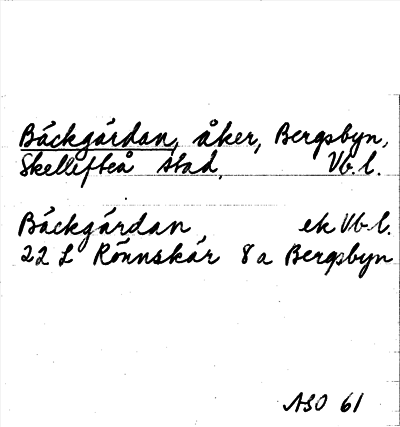 Bäckgärdan, åker, Bergsbyn,
Skellefteå stad, Vb. l.
Bäckgärdan ek Vb. l.
22 L Rönnskär 8a Bergsbyn
ASO 61